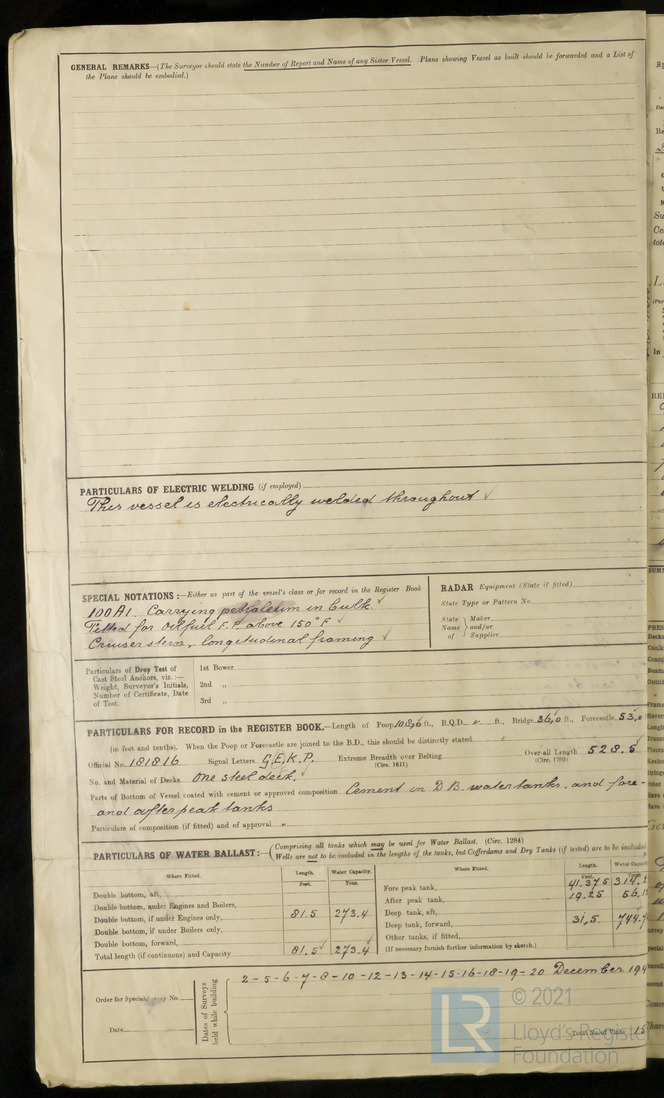 GENERAL REMARKS—(The Surveyor should state the Number of Report and Name of any Sister Vessel. Plans showing Vessel as built should be forwarded and a List of
the Plans should be embodied.)
PARTICULARS OF ELECTRIC WELDING (if employed)
This vessel is electrically welded throughout ✓
SPECIAL NOTATIONS :—Either as part of the vessel's class or for record in the Register Book
100A1. Carrying petroleum in bulk ✓
Fitted for oil fuel F.P. above 150°F ✓
Cruiser stern, longitudinal framing ✓
RADAR Equipment (State if fitted)
State Type or Pattern No.
State Name of } Maker and/or Supplier
Particulars of Drop Test of
Cast Steel Anchors, viz. :—
Weight, Surveyor's Initials,
Number of Certificate, Date
of Test.
1st Bower
2nd „
3rd „
PARTICULARS FOR RECORD in the REGISTER BOOK.—Length of Poop 108,6 ft., R.Q.D. ft., Bridge 36,0 ft., Forecastle 53,
(in feet and tenths). When the Poop or Forecastle are joined to the B.D., this should be distinctly stated
Official No. 181816 Signal Letters G.E.K.P. Extreme Breadth over Belting (Circ. 1611) Over-all Length 528.5
No. and Material of Decks One steel deck.
Parts of Bottom of Vessel coated with cement or approved composition Cement in D.B. water tanks, and fore-
and after peak tanks
Particulars of composition (if fitted) and of approval
PARTICULARS OF WATER BALLAST:—(Comprising all tanks which may be used for Water Ballast. (Circ. 1284)
Wells are not to be included in the lengths of the tanks, but Cofferdams and Dry Tanks (if tested) are to be included.
Where Fitted. Length. Feet. Water Capacity. Tons.
Double bottom, aft,
Double bottom, under Engines and Boilers,
Double bottom, if under Engines only, 81.5 273.4
Double bottom, if under Boilers only,
Double bottom, forward,
Total length (if continuous) and Capacity 81.5 ✓ 273.4 ✓
Where Fitted. Length. Feet.
Fore peak tank, 41.375
After peak tank, 19.25
Deep tank, aft,
Deep tank, forward, 31,5
Other tanks, if fitted,
(If necessary furnish further information by sketch.)
Order for Special Survey No.
Date
Dates of Surveys held while building
2-5-6-7-8-10-12-13-14-15-16-18-19-20 December 194
Total No. of Visits 15
LR
© 2021
Lloyd's Register
Foundation